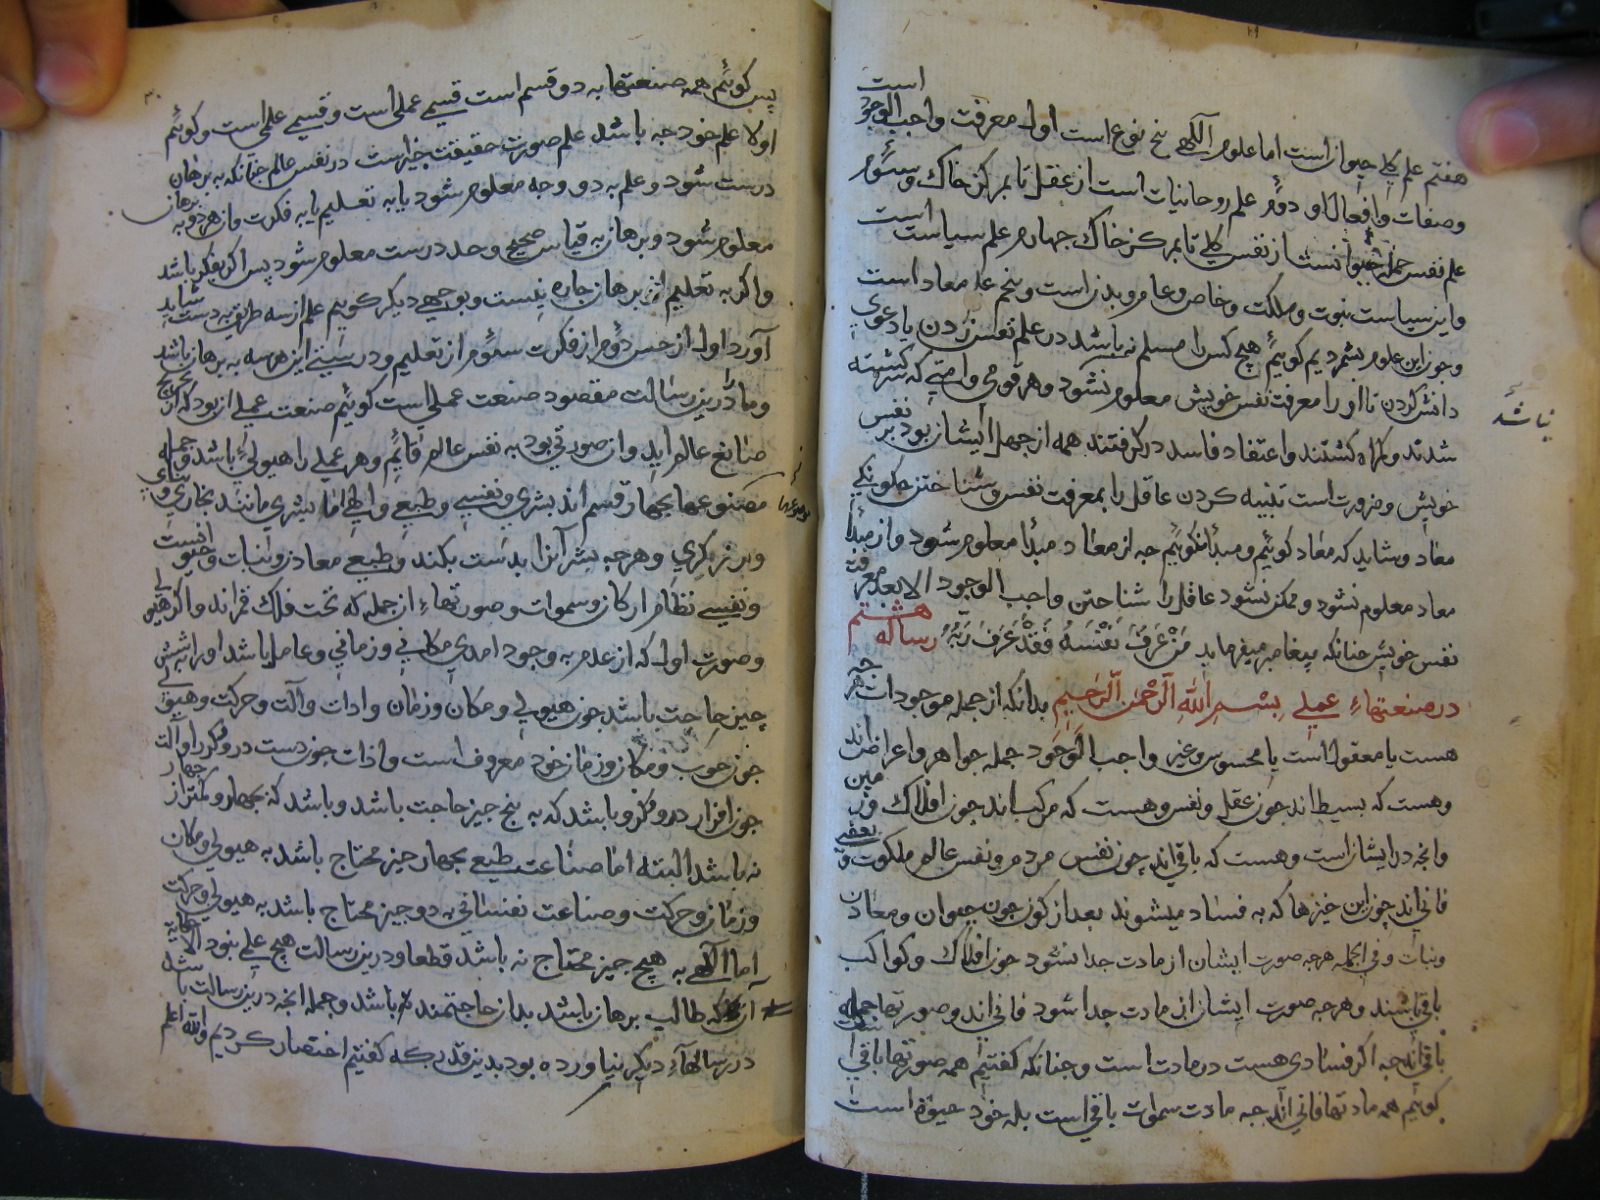 است
هفتم علم کلی حیوان است اما علوم الٓهی پنج نوع است اول معرفت واجب الوجود
وصفات وافعال او دوم علم روحانیات است از عقل تا بمرکز خاک وسوم
علم نفس جمله حیوانست از نفس کلی تا بمرکز خاک جهارم علم سیاست است
واین سیاست نبوت وملکت وخاص وعام وبدن است وپنجم علم معاد است
وجون این علوم بشمردیم کوئیم هیچ کس را مسلم نه باشد در علم نفس زدن یا دعوی
دانش کردن تا او را معرفت نفس خویش معلوم نشود وهر قومی وامتی که سرکشته
نباشد
شدند وکمراه کشتند واعتقاد فاسد درکرفتند همه از جهل ایشان بود بر نفس
خویش وضرورت است تنبیه کردن عاقل را بمعرفت نفس وشناختن جکونکی
معاد وشاید که معاد کوئیم ومبدأ نکوئیم جه از معاد مبدأ معلوم شود واز مبدأ
معاد معلوم نشود وممکن نشود عاقل را شناختن واجب الوجود الا بعد معرفت
نفس خویش جنانکه پیغامبر میفرماید مَنْ عَرَفَ نَفْسَهُ فَقَدْ عَرَفَ رَبَّهُ رساله هشتم
در صنعتهاء عملی بِسْمِ اللّٰهِ الرَّحْمٰنِ الرَّحِیمِ بدانکه از جمله موجودات هرجه
هست یا معقول است یا محسوس وغیر واجب الوجود جمله جواهر واعراض اند
وهست که بسیط اند جون عقل ونفس وهست که مرکب اند جون افلاک وزمین
وانجه در ایشان است وهست که باقی اند جون نفس مردم ونفس عالم ملکوت وبعضی
فانی اند جون این جیزها که به فساد میشوند بعد از کون جون حیوان ومعادن
ونبات وفی الجمله هرجه صورت ایشان از مادت جدا نشود جون افلاک وکواکب
باقی باشند وهرجه صورت ایشان از مادت جدا شود فانی اند وصورتها جمله
باقی اند جه اکر فسادی هست در مادت است وجنانکه کفتیم همه صورتها باقی
کوئیم همه مادتها فانی اند جه مادت سموات باقی است بله خود حیوة است
پس کوئیم همه صنعتها به دو قسم است قسمی عملی است وقسمی علمی است وکوئیم
اولا علم خود جه باشد علم صورت حقیقت جیز است در نفس عالم جنانکه به برهان
درست شود وعلم به دو وجه معلوم شود یا به تعلیم یا به فکرت واز هر دو به برهان
معلوم شود وبرهان به قیاس صحیح وحد درست معلوم شود پس اکر بفکر باشد
واکر به تعلیم از برهان جاره نیست وبوجهی دیکر کوئیم علم از سه طریق به دست شاید
آورد اول از حس دوم از فکرت سوم از تعلیم ودرستی این هر سه به برهان باشد
وما درین رسالت مقصود صنعت عملی است کوئیم صنعت عملی ان بود که از
صانع عالم اید وان صورتی بود به نفس عالم قایم وهر عملی را هیولی باشد وجمله
مصنوعها بجهار قسم اند بشری ونفسی وطبعی والٓهی اما بشری مانند نجاری وبنائی
وبرزکری وهرجه بشر آنرا بدست بکند وطبعی معادن ونبات وحیوانست
ونفسی نظام ارکان وسموات وصورتهاء از جمله که تحت فلک قمراند واکر هیولی
وصورت اول که از عدم به وجود امدی مکانی وزمانی وعاملی باشد او را به شش
جیز حاجت باشد جون هیولی ومکان وزمان وادات وآلت وحرکت وهیولی
جون جوب ومکان وزمان خود معروف است وادات جون دست درودکر وآلت
جون افزار درودکر وباشد که به پنج جیز حاجت باشد وباشد که بجهار وکمتر از جهار
نه باشد البته اما صناعت طبعی بجهار جیز محتاج باشد به هیولی ومکان
وزمان وحرکت وصناعت نفسانی به دو جیز محتاج باشد به هیولی وحرکت
اما الٓهی به هیچ جیز محتاج نه باشد قطعا ودرین رسالت هیچ علمی نبود الا
آنکه طالب برهان باشد بدان حاجتمند باشد وجمله انجه درین رسالت باشد
در رسالهاء دیکر نیاورده بود بدین قدر که کفتیم اختصار کردیم والله اعلم